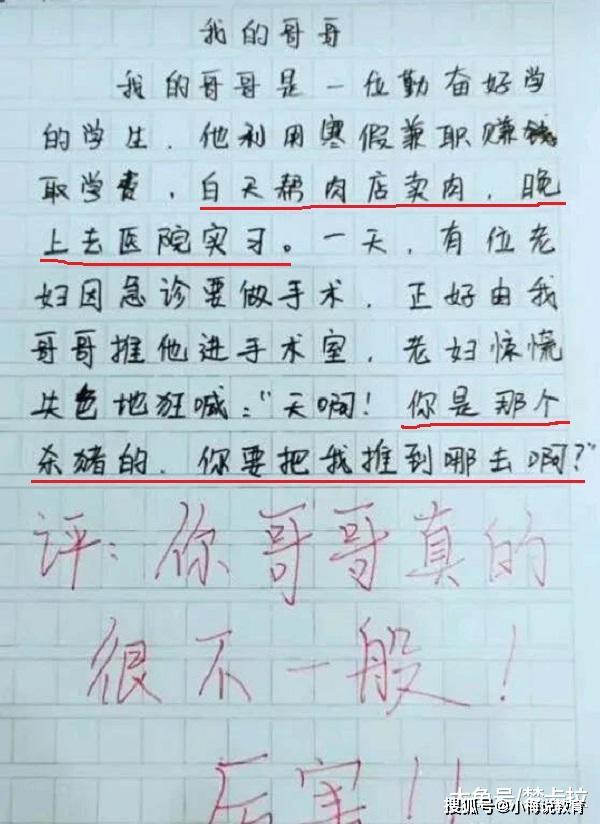 我的哥哥
我的哥哥是一位勤奋好学
的学生．他利用寒假兼职赚钱
取学费．白天帮肉店卖肉．晚
上去医院实习。一天．有位老
妇因急诊要做手术．正好由我
哥哥推他进手术室．老妇惊慌
失色地狂喊：“天啊！你是那个
杀猪的．你要把我推到哪去啊？”
评：你哥哥真的
很不一般！
厉害！！
大鱼号/梵卡拉
搜狐号@小梅说教育